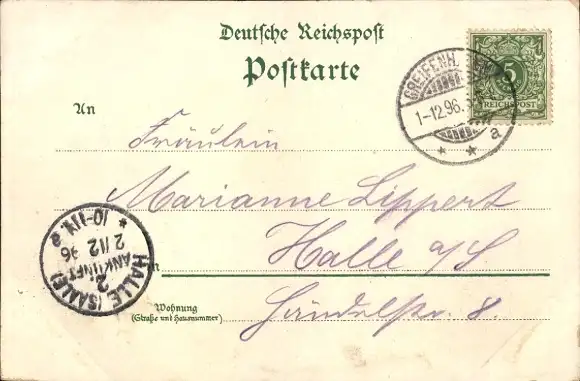 Deutsche Reichspost
Postkarte
5
REICHSPOST
GREIFENH
1-12.96.
* * a
An
Fräulein
Marianne Lippert
Halle a/S
in
Händelstr. 8.
Wohnung
(Straße und Hausnummer)
HALLE (SAALE)
2.
ANKUNFT
2/12
96
10-11 V. a
*